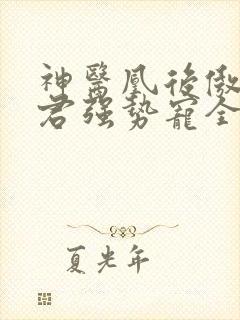 神醫鳳後傲
君強勢寵全
夏光年